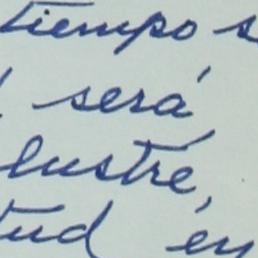 tiempo s
será
lustré,
tud én